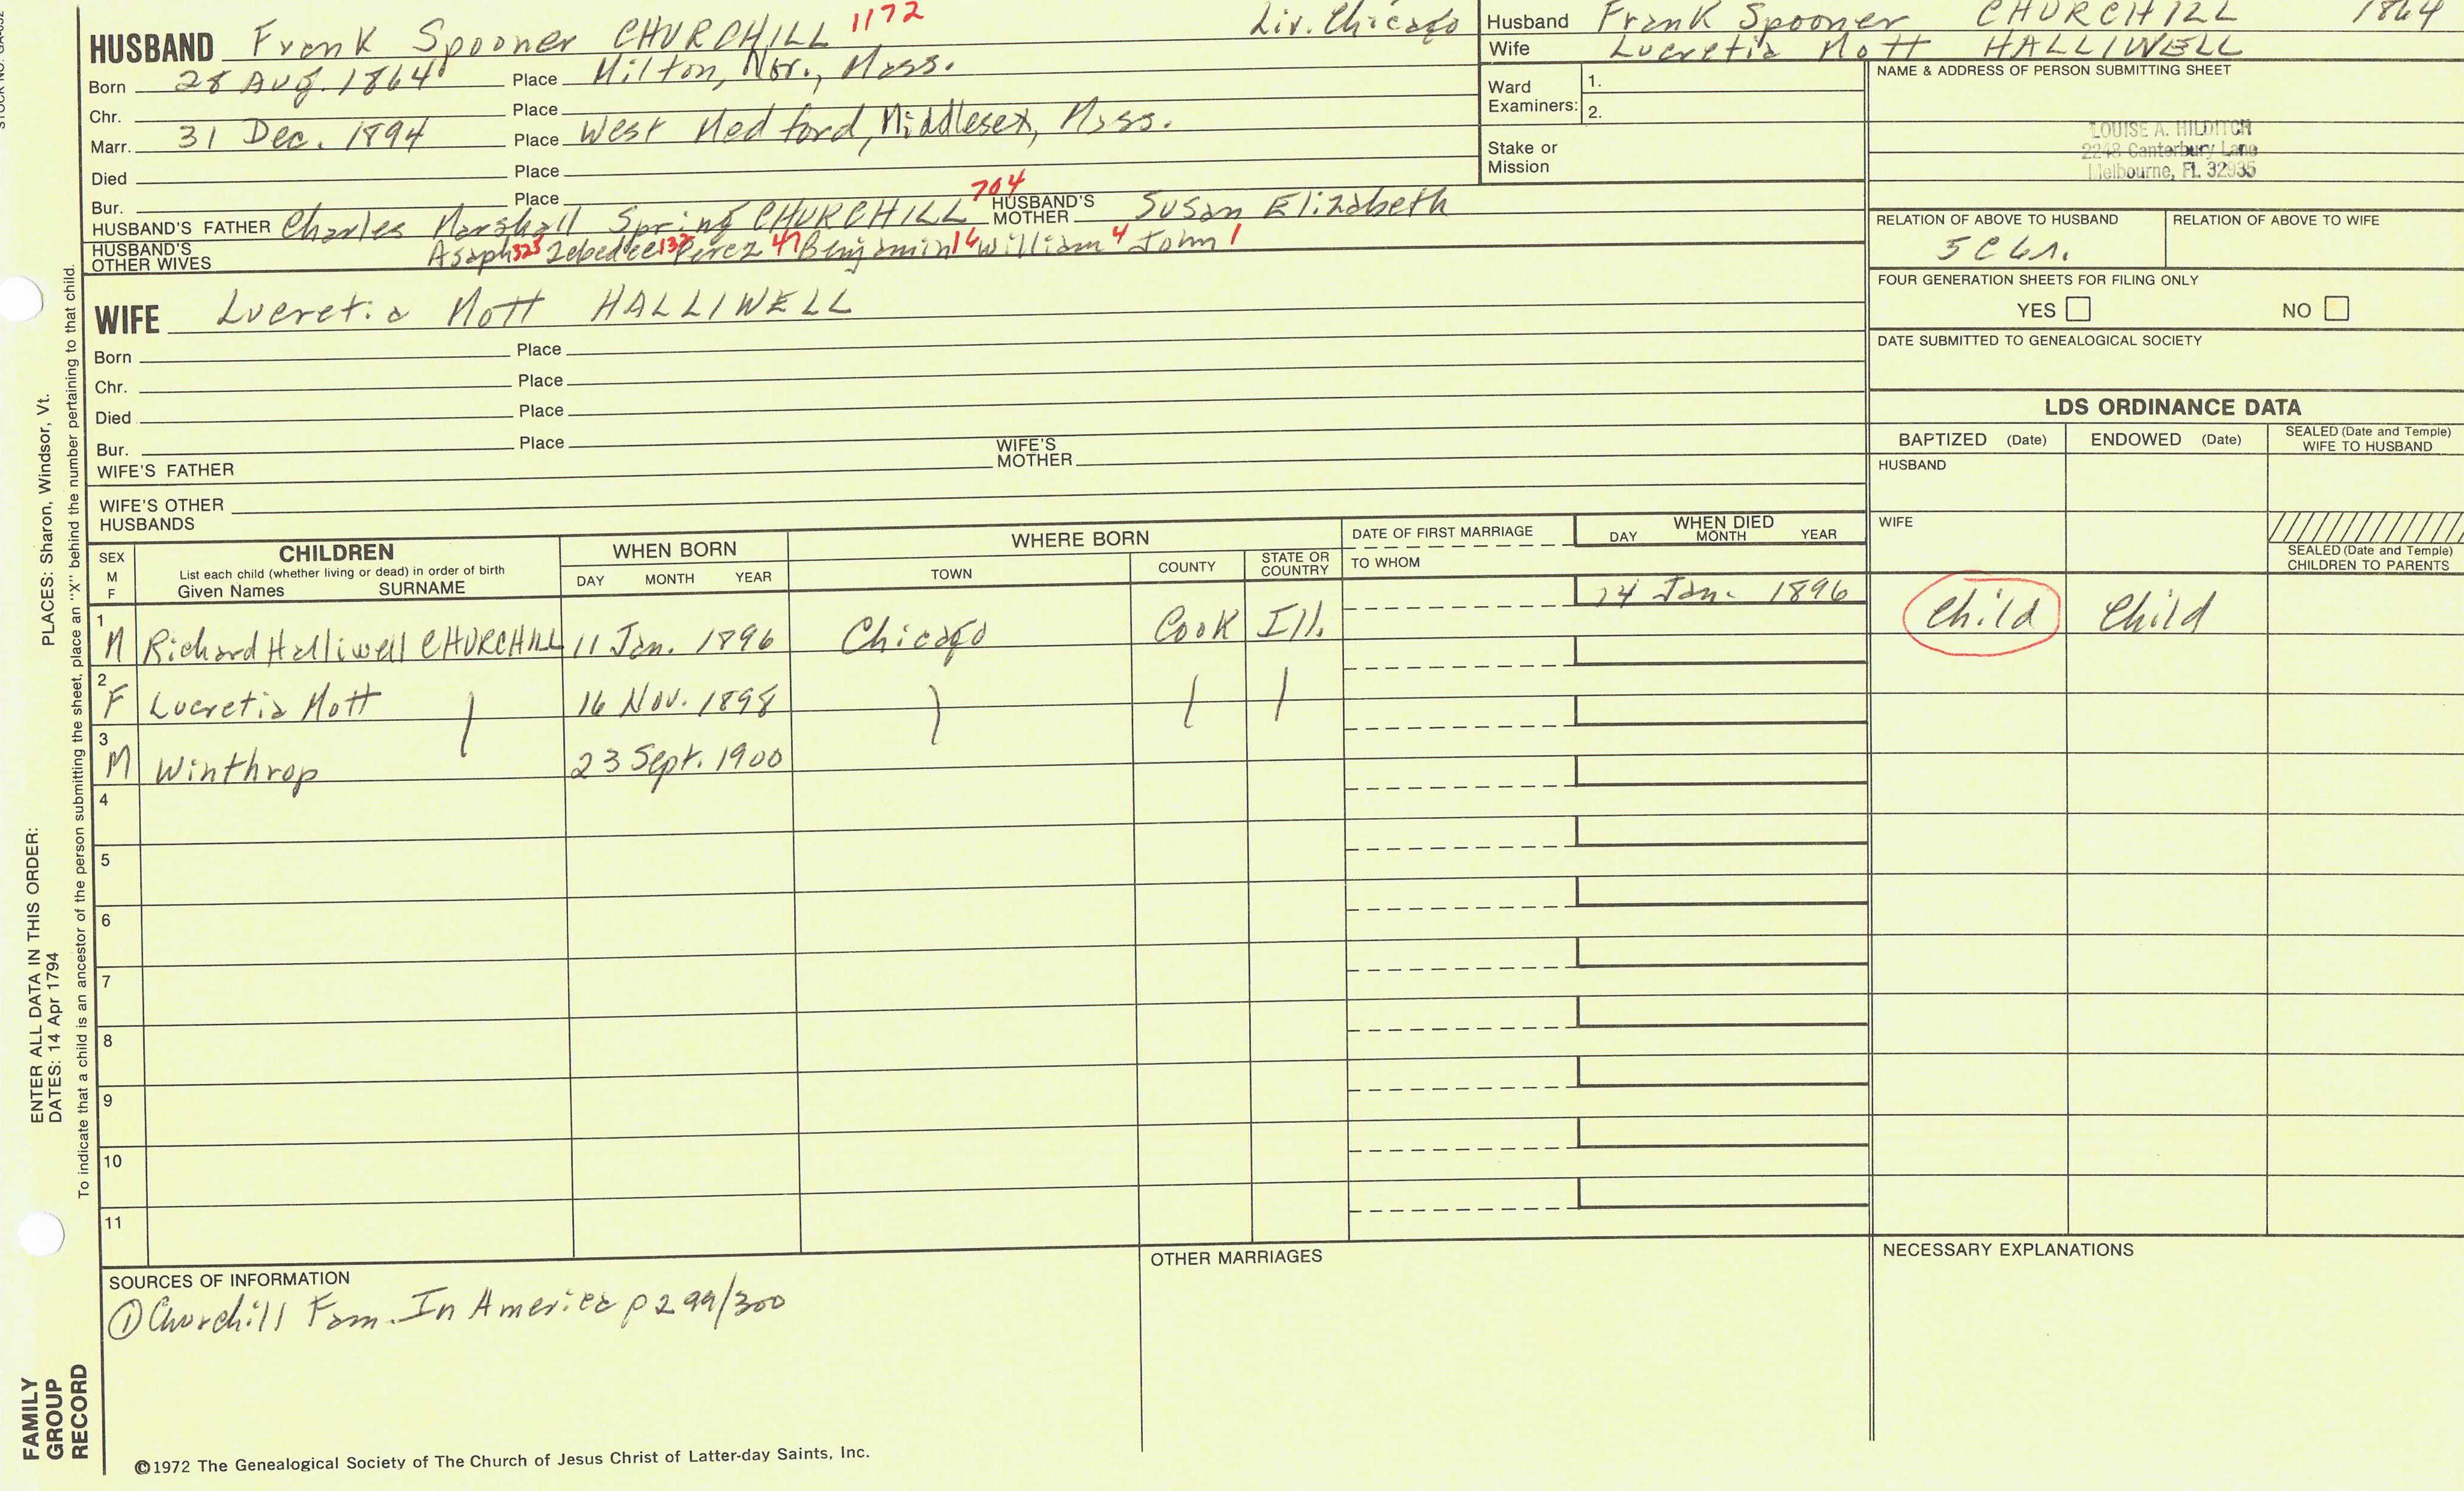 HUSBAND Frank Spooner CHURCHILL 1172 Liv. Chicago
Born 28 Aug. 1864 Place Milton, Nor., Mass.
Chr. Place
Marr. 31 Dec. 1894 Place West Medford, Middlesex, Mass.
Died Place
Bur. Place
HUSBAND'S FATHER Charles Marshall Spring CHURCHILL 704 HUSBAND'S MOTHER Susan Elizabeth
HUSBAND'S OTHER WIVES Asaph 323 Zebedee 132 Perez 47 Benjamin 16 William 4 John 1
WIFE Lucretia Mott HALLIWELL
Born Place
Chr. Place
Died Place
Bur. Place
WIFE'S FATHER WIFE'S MOTHER
WIFE'S OTHER HUSBANDS
Husband Frank Spooner CHURCHILL 1864
Wife Lucretia Mott HALLIWELL
Ward Examiners: 1.
2.
Stake or Mission
NAME & ADDRESS OF PERSON SUBMITTING SHEET
LOUISE A. HILDITCH
2248 Canterbury Lane
Melbourne, FL 32935
RELATION OF ABOVE TO HUSBAND RELATION OF ABOVE TO WIFE
5C6r.
FOUR GENERATION SHEETS FOR FILING ONLY
YES NO
DATE SUBMITTED TO GENEALOGICAL SOCIETY
LDS ORDINANCE DATA
BAPTIZED (Date) ENDOWED (Date) SEALED (Date and Temple) WIFE TO HUSBAND
HUSBAND
WIFE
SEALED (Date and Temple) CHILDREN TO PARENTS
SEX M F CHILDREN
List each child (whether living or dead) in order of birth
Given Names SURNAME
WHEN BORN
DAY MONTH YEAR
WHERE BORN
TOWN COUNTY STATE OR COUNTRY
DATE OF FIRST MARRIAGE
TO WHOM
WHEN DIED
DAY MONTH YEAR
1 M Richard Halliwell CHURCHILL 11 Jan. 1896 Chicago Cook Ill. 14 Jan. 1896 Child Child
2 F Lucretia Mott 16 Nov. 1898
3 M Winthrop 23 Sept. 1900
4
5
6
7
8
9
10
11
SOURCES OF INFORMATION
① Churchill Fam. In America p 299/300
OTHER MARRIAGES
NECESSARY EXPLANATIONS
©1972 The Genealogical Society of The Church of Jesus Christ of Latter-day Saints, Inc.
PLACES: Sharon, Windsor, Vt.
ENTER ALL DATA IN THIS ORDER:
DATES: 14 Apr 1794
To indicate that a child is an ancestor of the person submitting the sheet, place an "X" behind the number pertaining to that child.
FAMILY
GROUP
RECORD